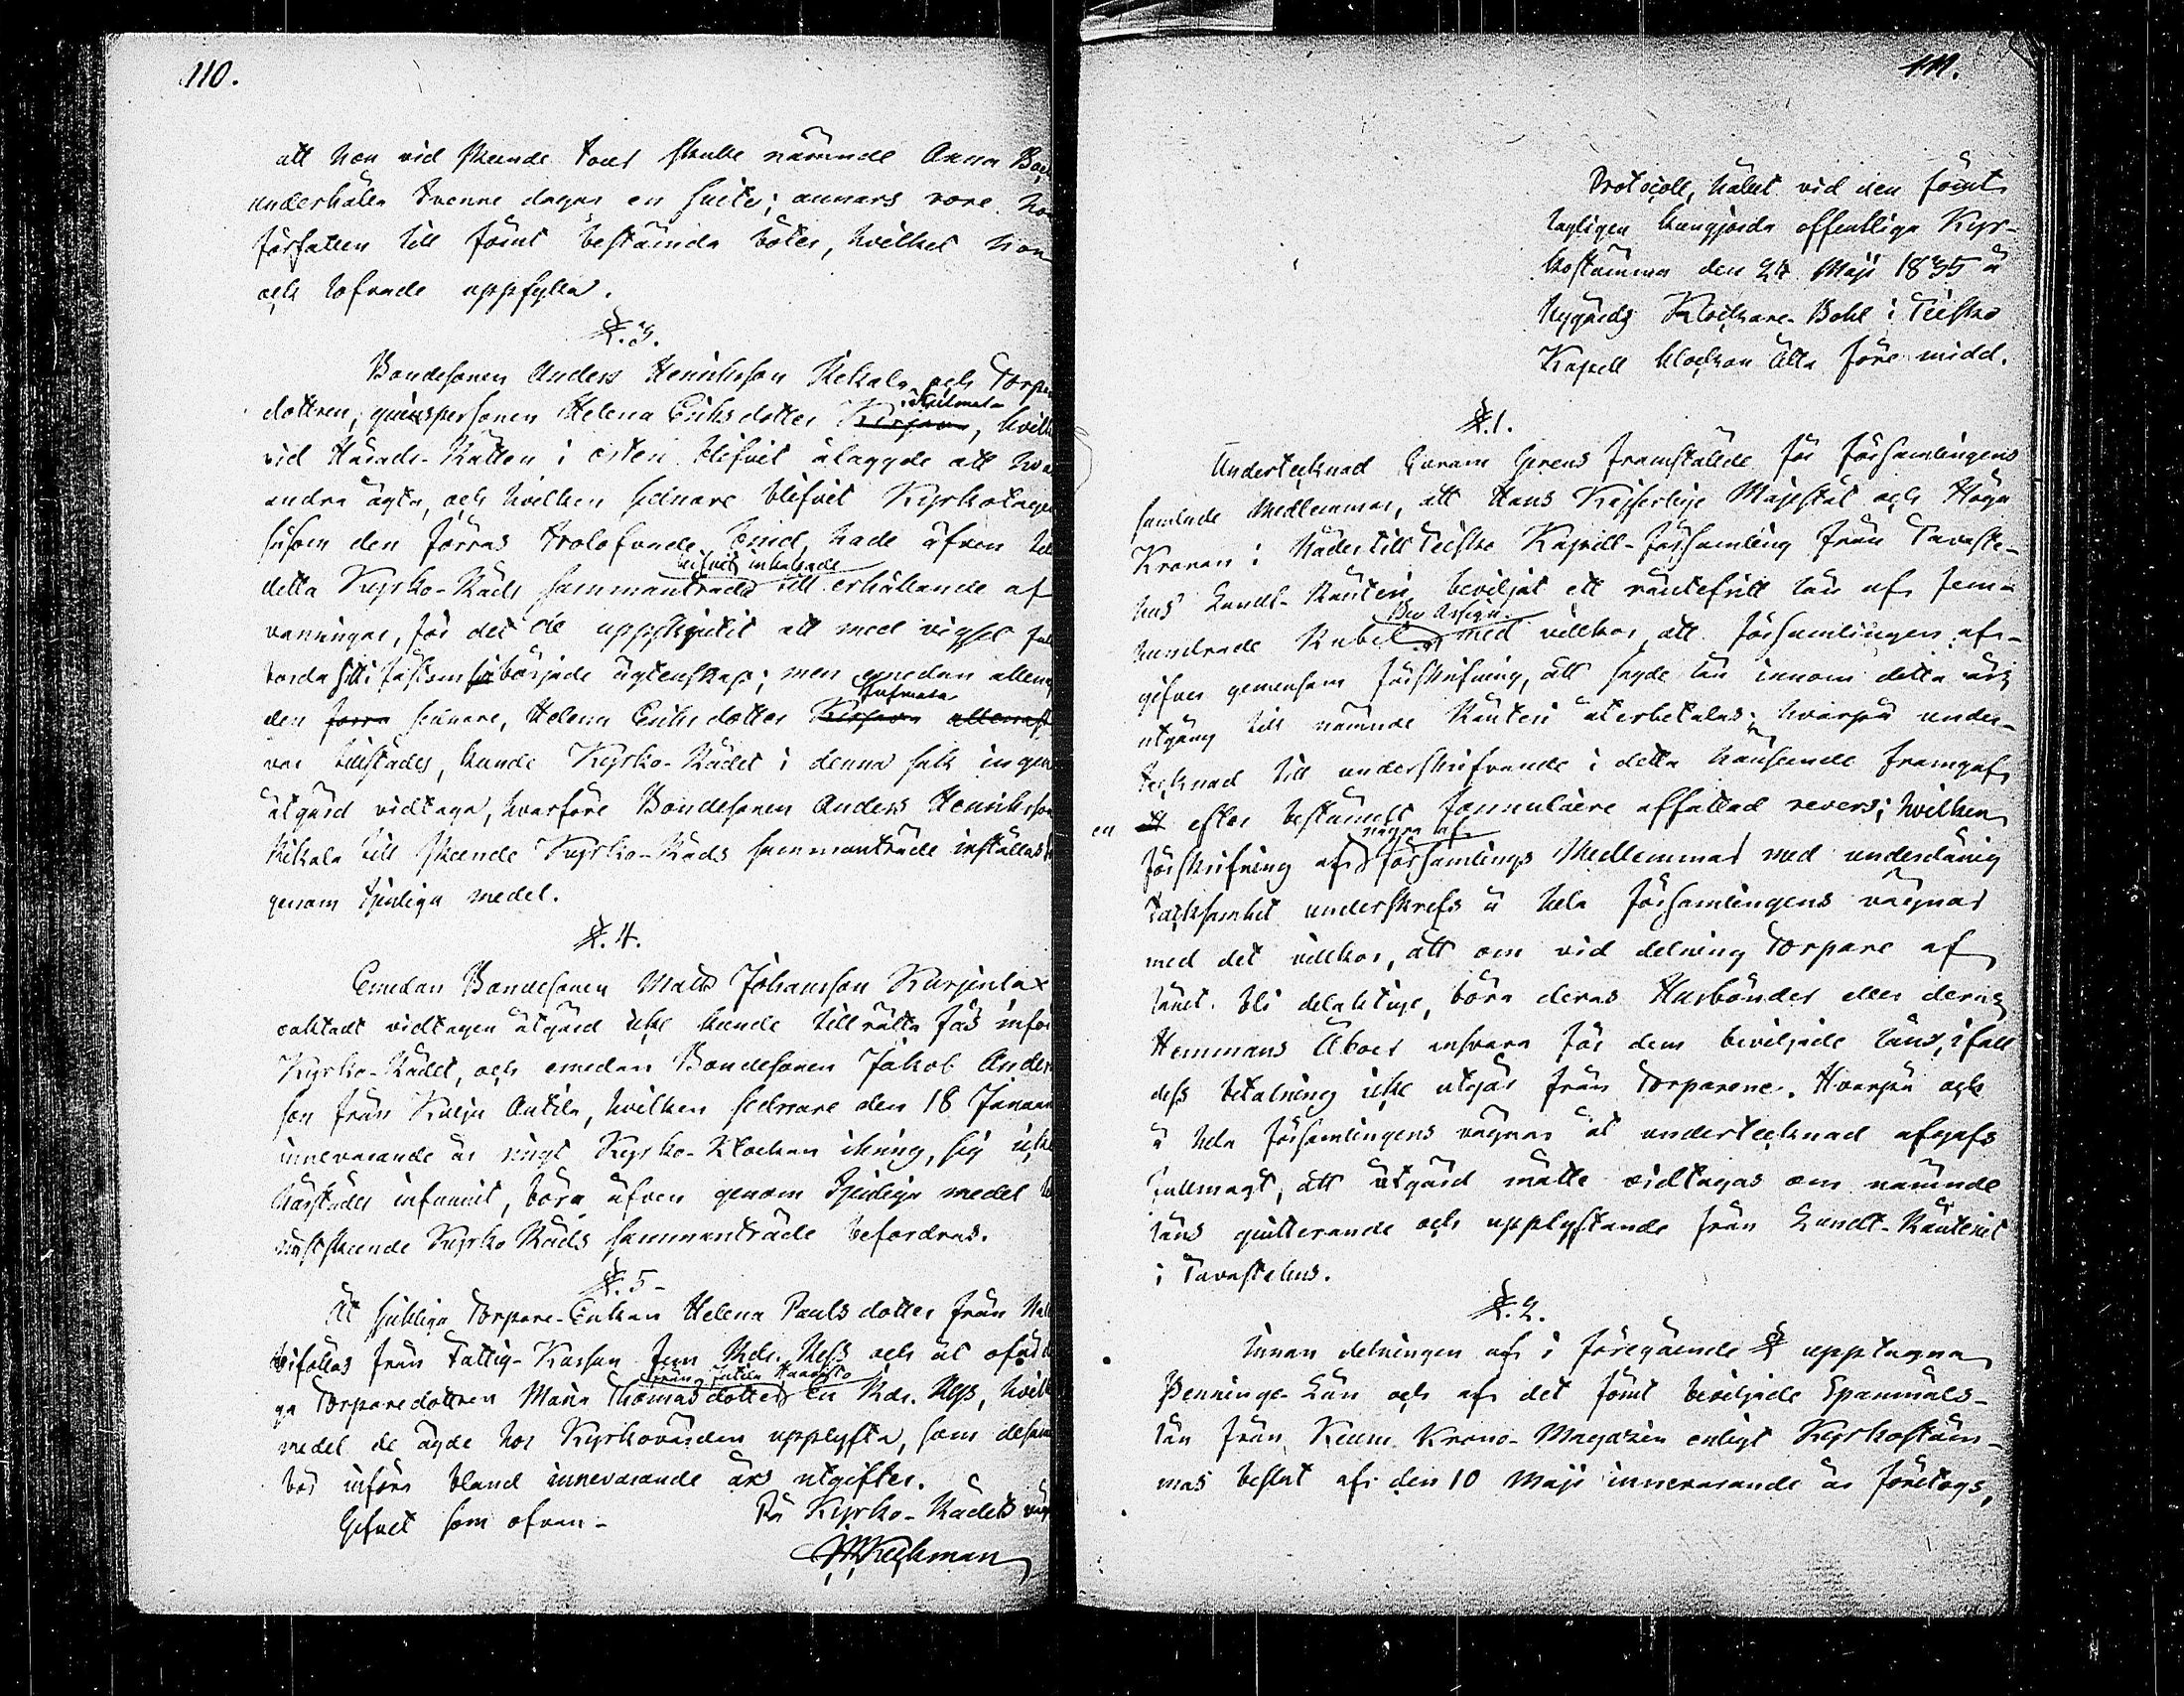 110.
att hon vid skeende tour skulle nämnde Anna
underhålla tvenne dagar en suite; annars vore
förfallen till förut bestämda böter, hvilket hon
ock lofvade uppfylla.
§. 3.
Bondesonen Anders Henriksson Kikala och Torpare
dottren, qvinspersonen Helena Eriksdotter Kirjava,
vid Härads-Rätten i östen blifvit ålaggde att
andra ägta, och hvilken sednare blifvit Kyrkotagen
såsom den förras trolofvade hade äfven till
blifvit inkallade
detta Kyrko-Råds sammanträde till erhållande af
varningar, för det de uppskjutit att med vigsel
sitt började ägtenskap; men emedan
den förra sednare, Helena Eriksdotter Kirjava allenast
var tillstädes, kunde Kyrko-Rådet i denna sak ingen
åtgärd vidtaga, hvarföre Bondesonen Anders Henriksson
Kikala till skeende Kyrko-Råds sammanträde inställas
genom tjenliga medel.
§. 4.
Emedan Bondesonen Matts Johansson Kurjenlax
oaktadt vidtagen åtgärd icke kunde tillrätta fås inför
Kyrko-Rådet, och emedan Bondesonen Jakob Anders
son från Antila, hvilken sednare den 18 Januari
innevarande år ringt Kyrko-Klockan ikring, sig icke
härstädes infunnit, böra äfven genom tjenliga medel
nästskeende Kyrko Råds sammanträde befordras.
§. 5-
Åt sjukliga Torpare-Enkan Helena Pauls dotter från
bifölls från Fattig-Kassan Fem Rdr. Rgss och åt
från Haavisto
ga Torparedottren Maria Thomasdotter En Rdr. Rgss,
medel de ägde hos Kyrkovärden upplyfta, som
bör införa bland innevarande års utgifter.
Gifvet som ofvan- På Kyrko-Rådets
111.
Protocoll, hållet vid den förut
lagligen kungjorda offentliga Kyr-
kostämma den 24 Maji 1835 å
Nygårds Klockare-Bohl i Teisko
Kapell klockan Åtta före midd.
§. 1.
Undertecknad framstälde för Församlingens
samlade Medlemmar, att Hans Kejserlige Majestät och Höga
Kronan i Nåder till Teisko Kapell-Församling från Tavaste-
hus Landt-Ränteri beviljat ett räntefritt lån af fem-
Bco Assign.
hundrade Rubel med villkor att Församlingen af-
gifver gemensam förskrifning, att sagde lån innom detta års
utgång till nämnde Ränteri återbetalas; hvarpå under-
tecknad till underskrifvande i detta hänseende framgaf
en efter bestämdt formulaire affattad revers; hvilken
några af
förskrifning af Församlings Medlemmar med underdånig
tacksamhet underskrefs å hela Församlingens vägnar
med det villkor, att om vid delning Torpare af
lånet bli delaktige, böra deras Husbönder eller deras
Hemmans Åboer ansvara för dem beviljade låns, ifall
dess betalning icke utgår från Torparene. Hvarpå ock
å hela församlingens vägnar åt undertecknad afgafs
Fullmagt, att åtgärd måtte vidtagas om nämnde
låns quitterande och upplyftande från Landt-Ränteriet
i Tavastehus.
§. 2.
Innan delningen af i föregående § upptagna
Pennings Lån och af det förut beviljade Spannmåls-
lån från Krono-Magazin enligt Kyrkostäm-
mas beslut af den 10 Maji innevarande år företogs,